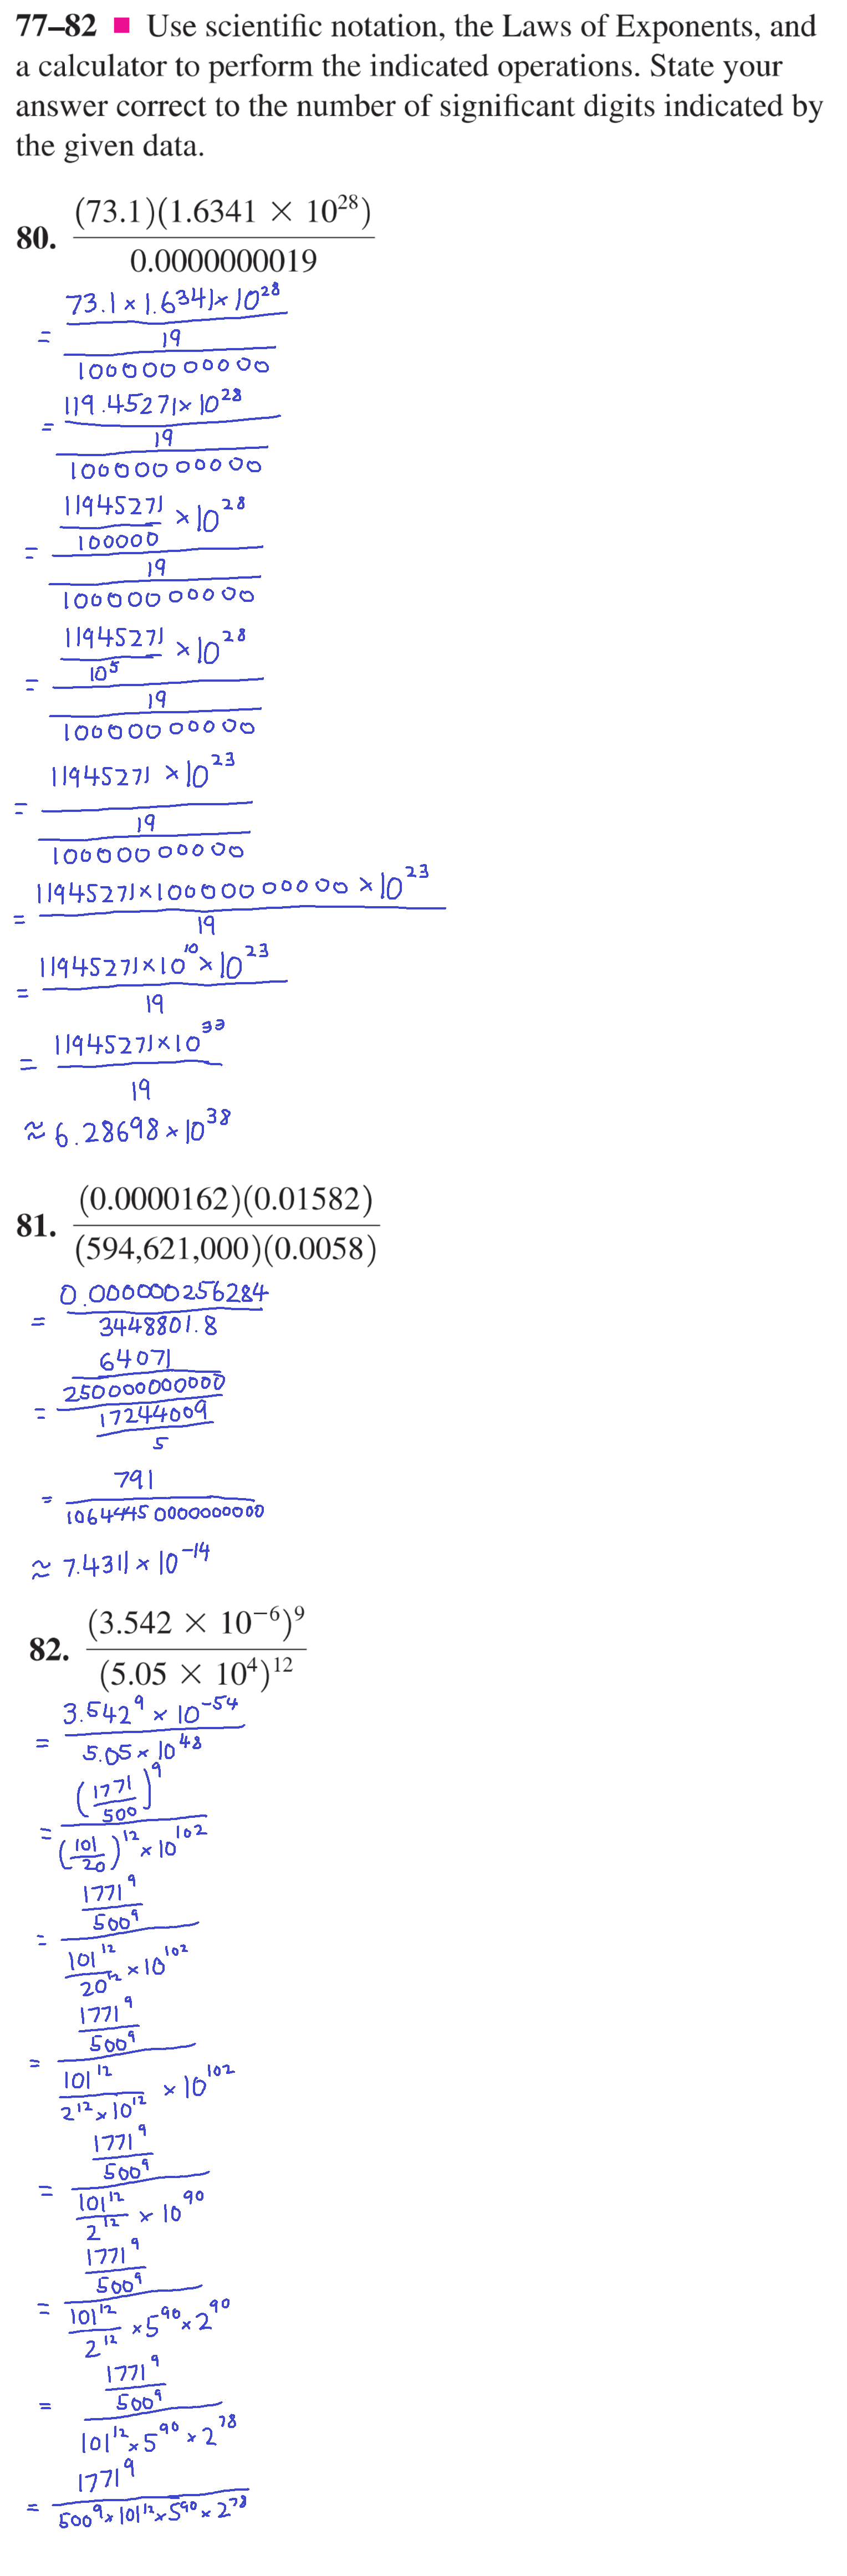 77–82 ■ Use scientific notation, the Laws of Exponents, and
a calculator to perform the indicated operations. State your
answer correct to the number of significant digits indicated by
the given data.
80. (73.1)(1.6341 × 10²⁸)
0.0000000019
73.1 × 1.6341 × 10²⁸
=
19
10000000000
119.45271 × 10²⁸
=
19
10000000000
11945271 × 10²⁸
100000
=
19
10000000000
11945271 × 10²⁸
10⁵
=
19
10000000000
11945271 × 10²³
=
19
10000000000
11945271 × 10000000000 × 10²³
=
19
11945271 × 10¹⁰ × 10²³
=
19
11945271 × 10³³
=
19
≈ 6.28698 × 10³⁸
81. (0.0000162)(0.01582)
(594,621,000)(0.0058)
0.000000256284
=
3448801.8
64071
250000000000
=
17244009
5
791
=
10644450000000000
≈ 7.4311 × 10⁻¹⁴
82. (3.542 × 10⁻⁶)⁹
(5.05 × 10⁴)¹²
3.542⁹ × 10⁻⁵⁴
=
5.05 × 10⁴⁸
(1771/500)⁹
=
(101/20)¹² × 10¹⁰²
1771⁹
500⁹
=
101¹²
20¹² × 10¹⁰²
1771⁹
500⁹
=
101¹²
2¹² × 10¹² × 10¹⁰²
1771⁹
500⁹
=
101¹²
2¹² × 10⁹⁰
1771⁹
500⁹
=
101¹²
2¹² × 5⁹⁰ × 2⁹⁰
1771⁹
500⁹
=
101¹² × 5⁹⁰ × 2⁷⁸
1771⁹
=
500⁹ × 101¹² × 5⁹⁰ × 2⁷⁸